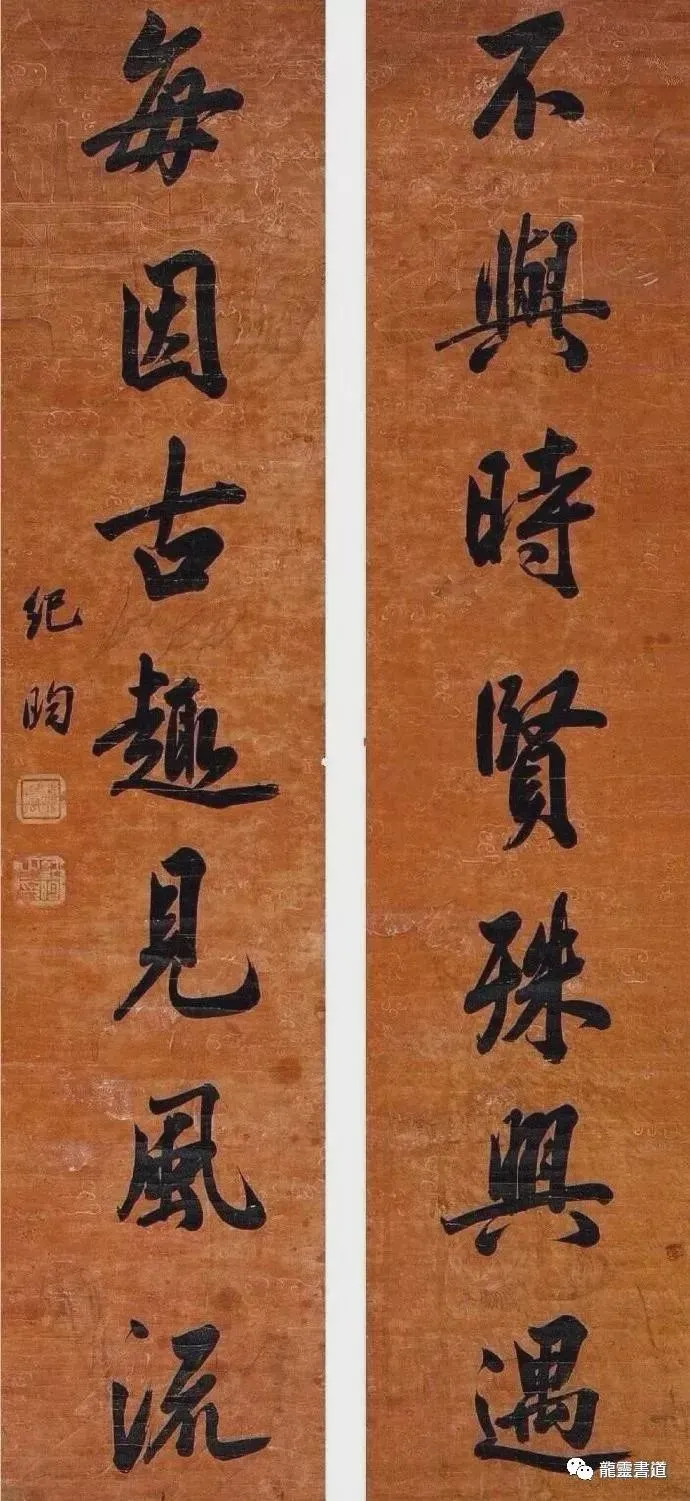 不與時賢殊興遇
每因古趣見風流
紀昀
龍靈書道